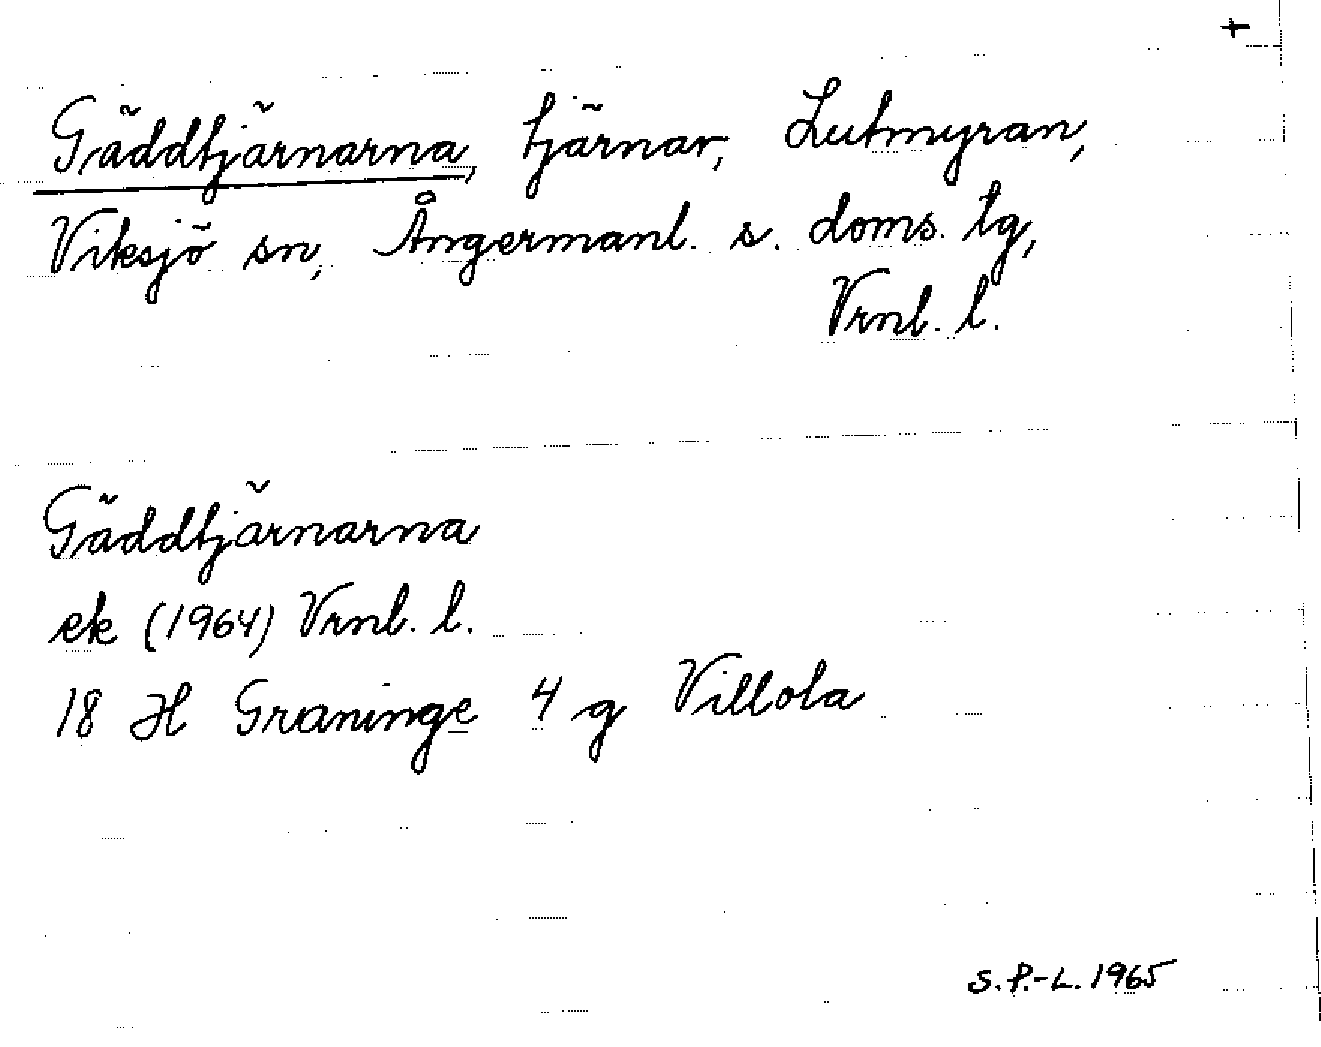 +
Gäddtjärnarna, tjärnar, Lutmyran,
Viksjö sn, Ångermanl. s. doms. tg,
Vrnl. l.
Gäddtjärnarna
ek (1964) Vrnl. l.
18 H Graninge 4 g Villola
S.P.-L. 1965